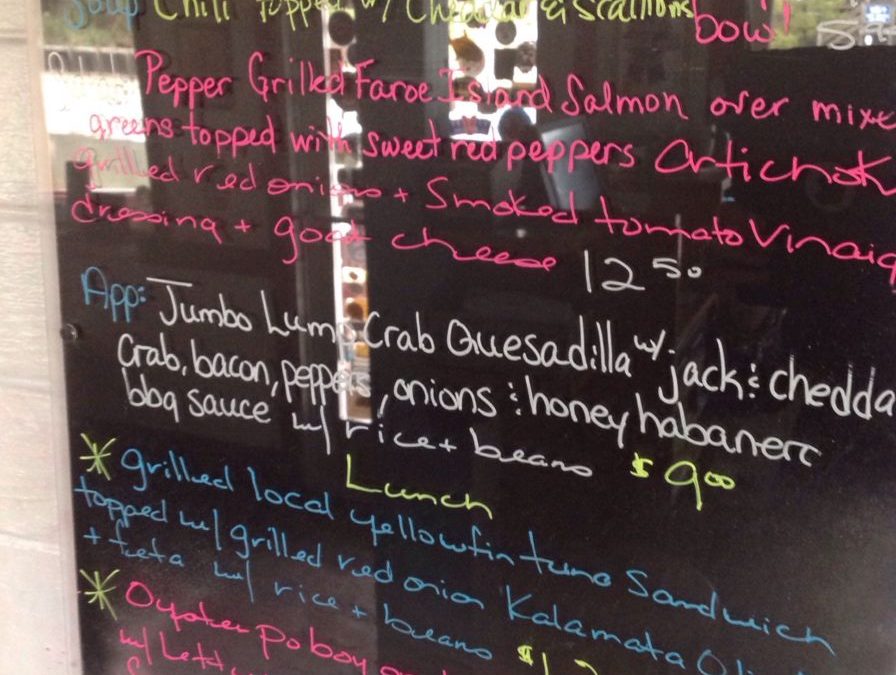 Soup Chili topped w/ Cheddar & Scallions bowl
Pepper Grilled Faroe Island Salmon over mixe
greens topped with sweet red peppers Artichok
grilled red onions + Smoked tomato Vinaig
dressing + goat cheese 12 50
App: Jumbo Lump Crab Quesadilla w/ jack & chedda
Crab, bacon, peppers, onions & honey habanero
bbq sauce w/ rice + beans $9 00
Lunch
* grilled local yellowfin tuna Sandwich
topped w/ grilled red onion Kalamata Oli
+ feta w/ rice + beans $1
* Oyster Poboy
w/ Lett